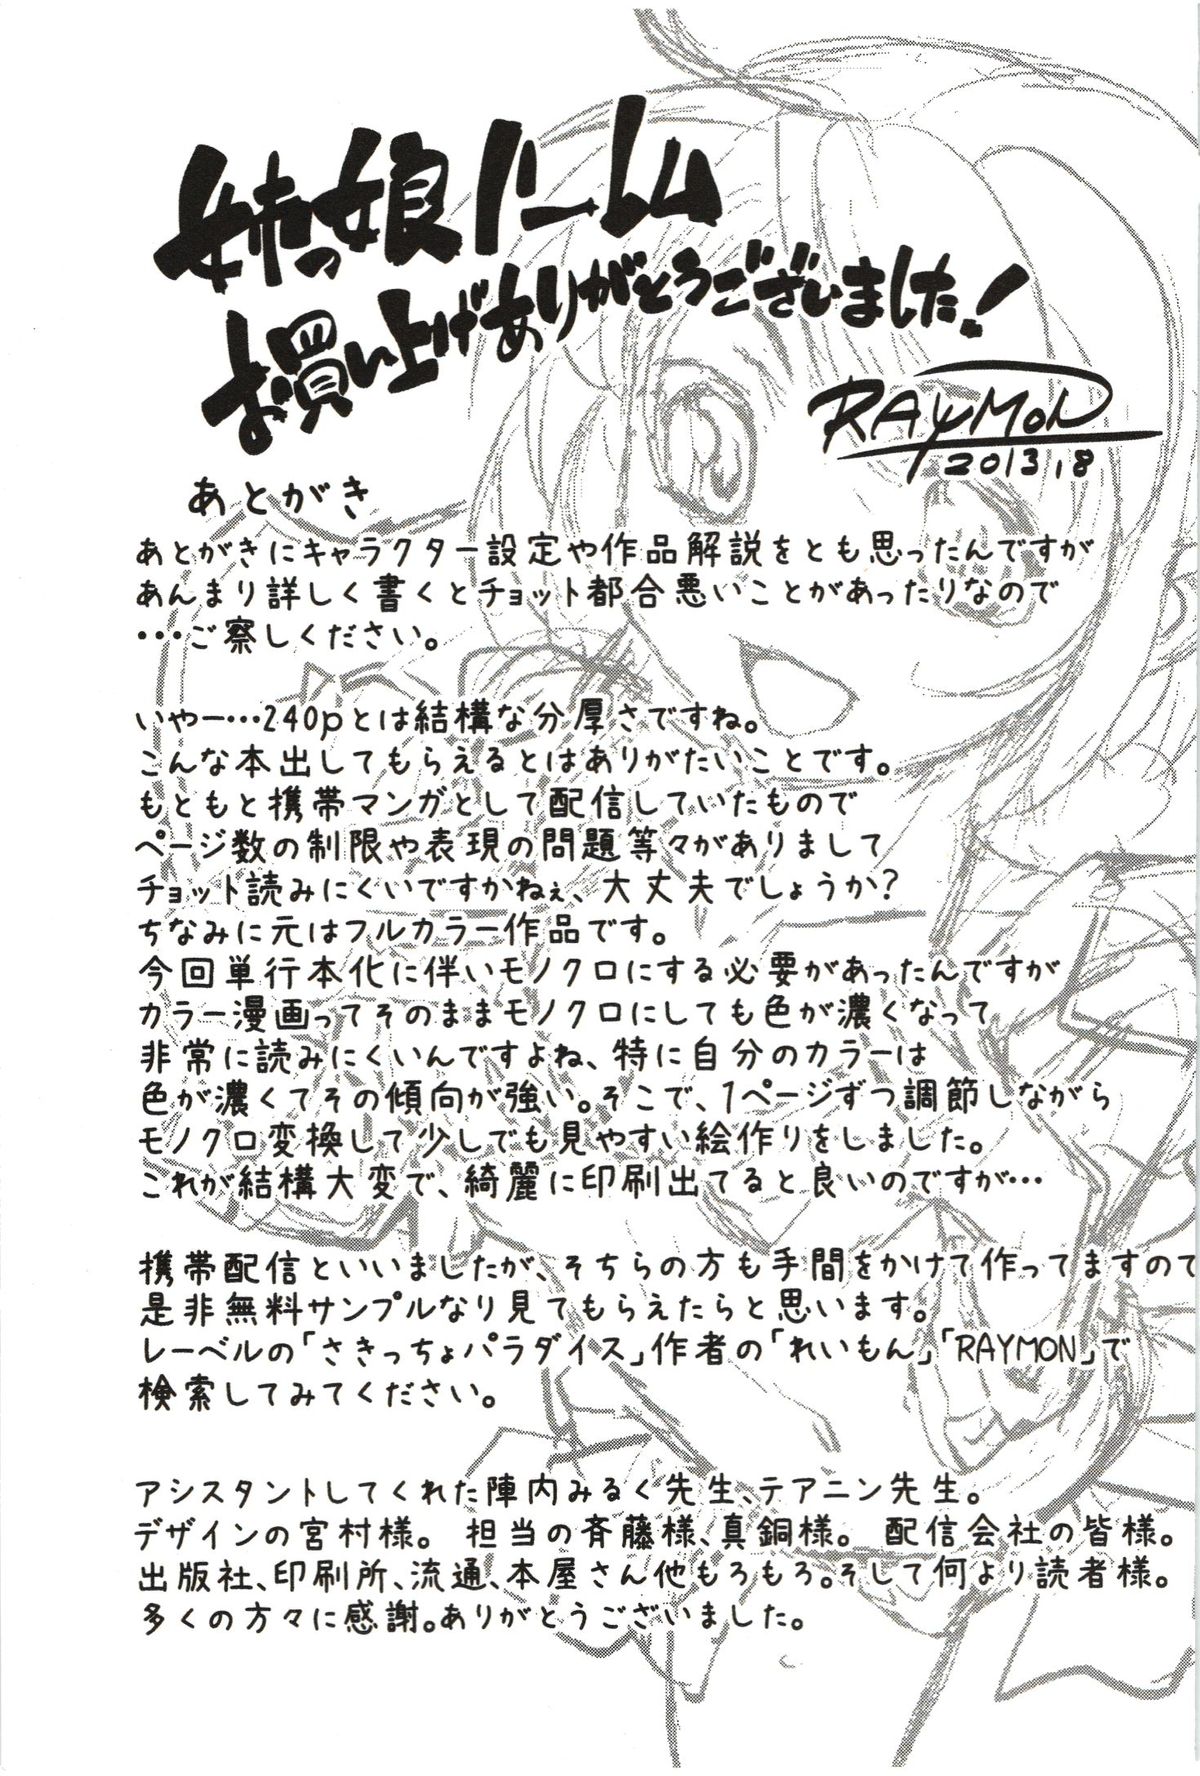 姉っ娘ハーレム
お買い上げありがとうございました!
RAYMON
2013,8
あとがき
あとがきにキャラクター設定や作品解説をとも思ったんですが
あんまり詳しく書くとチョット都合悪いことがあったりなので
・・・ご察しください。
いやー…240pとは結構な分厚さですね。
こんな本出してもらえるとはありがたいことです。
もともと携帯マンガとして配信していたもので
ページ数の制限や表現の問題等々がありまして
チョット読みにくいですかねぇ、大丈夫でしょうか?
ちなみに元はフルカラー作品です。
今回単行本化に伴いモノクロにする必要があったんですが
カラー漫画ってそのままモノクロにしても色が濃くなって
非常に読みにくいんですよね、特に自分のカラーは
色が濃くてその傾向が強い。そこで、1ページずつ調節しながら
モノクロ変換して少しでも見やすい絵作りをしました。
これが結構大変で、綺麗に印刷出てると良いのですが…
携帯配信といいましたが、そちらの方も手間をかけて作ってますので
是非無料サンプルなり見てもらえたらと思います。
レーベルの「さきっちょパラダイス」作者の「れいもん」「RAYMON」で
検索してみてください。
アシスタントしてくれた陣内みるく先生、テアニン先生。
デザインの宮村様。 担当の斉藤様、真銅様。 配信会社の皆様。
出版社、印刷所、流通、本屋さん他もろもろ。そして何より読者様。
多くの方々に感謝。ありがとうございました。